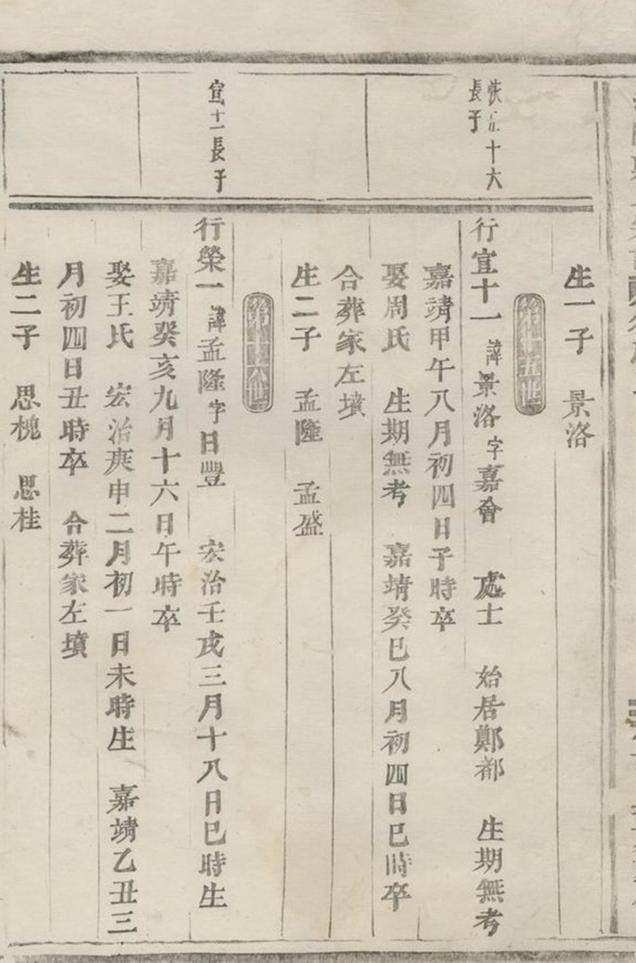 生一子 景洛
第十五世
㤗江十六
長子
行宣十一 諱景洛字嘉會 處士 始居鄭都 生期無考
嘉靖甲午八月初四日子時卒
娶周氏 生期無考 嘉靖癸巳八月初四日巳時卒
合葬家左墳
生二子 孟隆 孟盛
第十六世
宣十一長子
行榮一 諱孟隆字日豐 宏治壬戌三月十八日巳時生
嘉靖癸亥九月十六日午時卒
娶王氏 宏治庚申二月初一日未時生 嘉靖乙丑三
月初四日丑時卒 合葬家左墳
生二子 思槐 思桂